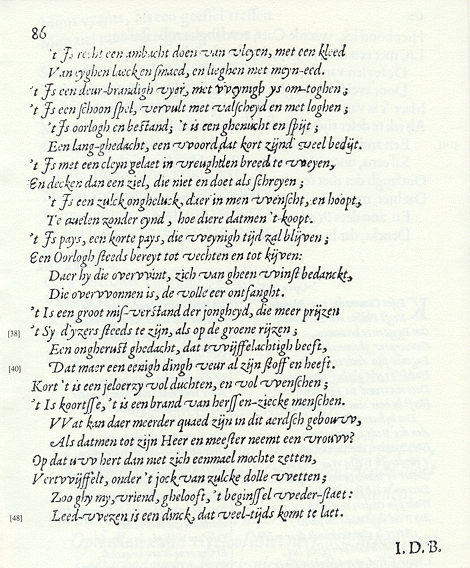 86
't Js recht een ambacht doen van vleyen, met een kleed
Van eyghen laeck en smaed, en lieghen met meyn-eed.
't Js een deur-brandigh vyer, met vveynigh ys om-toghen;
't Js een schoon spel, vervult met valscheyd en met loghen;
't Js oorlogh en bestand; 't is een ghenucht en spijt;
Een lang-ghedacht, een vvoord, dat kort zijnd veel bedijt.
't Js met een cleyn gelaet in vreughden breed te vveyen,
En decken dan een ziel, die niet en doet als schreyen;
't Js een zulck ongheluck, daer in men vvenscht, en hoopt,
Te quelen zonder eynd, hoe diere datmen 't koopt.
't Js pays, een korte pays, die vveynigh tijd zal blijven;
Een Oorlogh steeds bereyt tot vechten en tot kijven:
Daer hy die overvvint, zich van gheen vvinst bedanckt,
Die overvvonnen is, de volle eer ontfanght.
't Is een groot mis-verstand der jongheyd, die meer prijzen
[38] 't Sy d'yzers steeds te zijn, als op de groene rijzen;
Een ongherust ghedacht, dat tvvijffelachtigh beeft,
[40] Dat maer een eenigh dingh veur al zijn stoff en heeft.
Kort 't is een jeloerzy vol duchten, en vol vvenschen;
't Is koortsse, 't is een brand van herssen-ziecke menschen.
VVat kan daer meerder quaed zijn in dit aerdsch gebouvv,
Als datmen tot zijn Heer en meester neemt een vrouvv?
Op dat uvv hert dan niet zich eenmael mochte zetten,
Vertvvijffelt, onder 't jock van zulcke dolle vvetten;
Zoo ghy my, vriend, ghelooft, 't beginssel vveder-staet:
[48] Leed-vvezen is een dinck, dat veel-tijds komt te laet.
I. D. B.